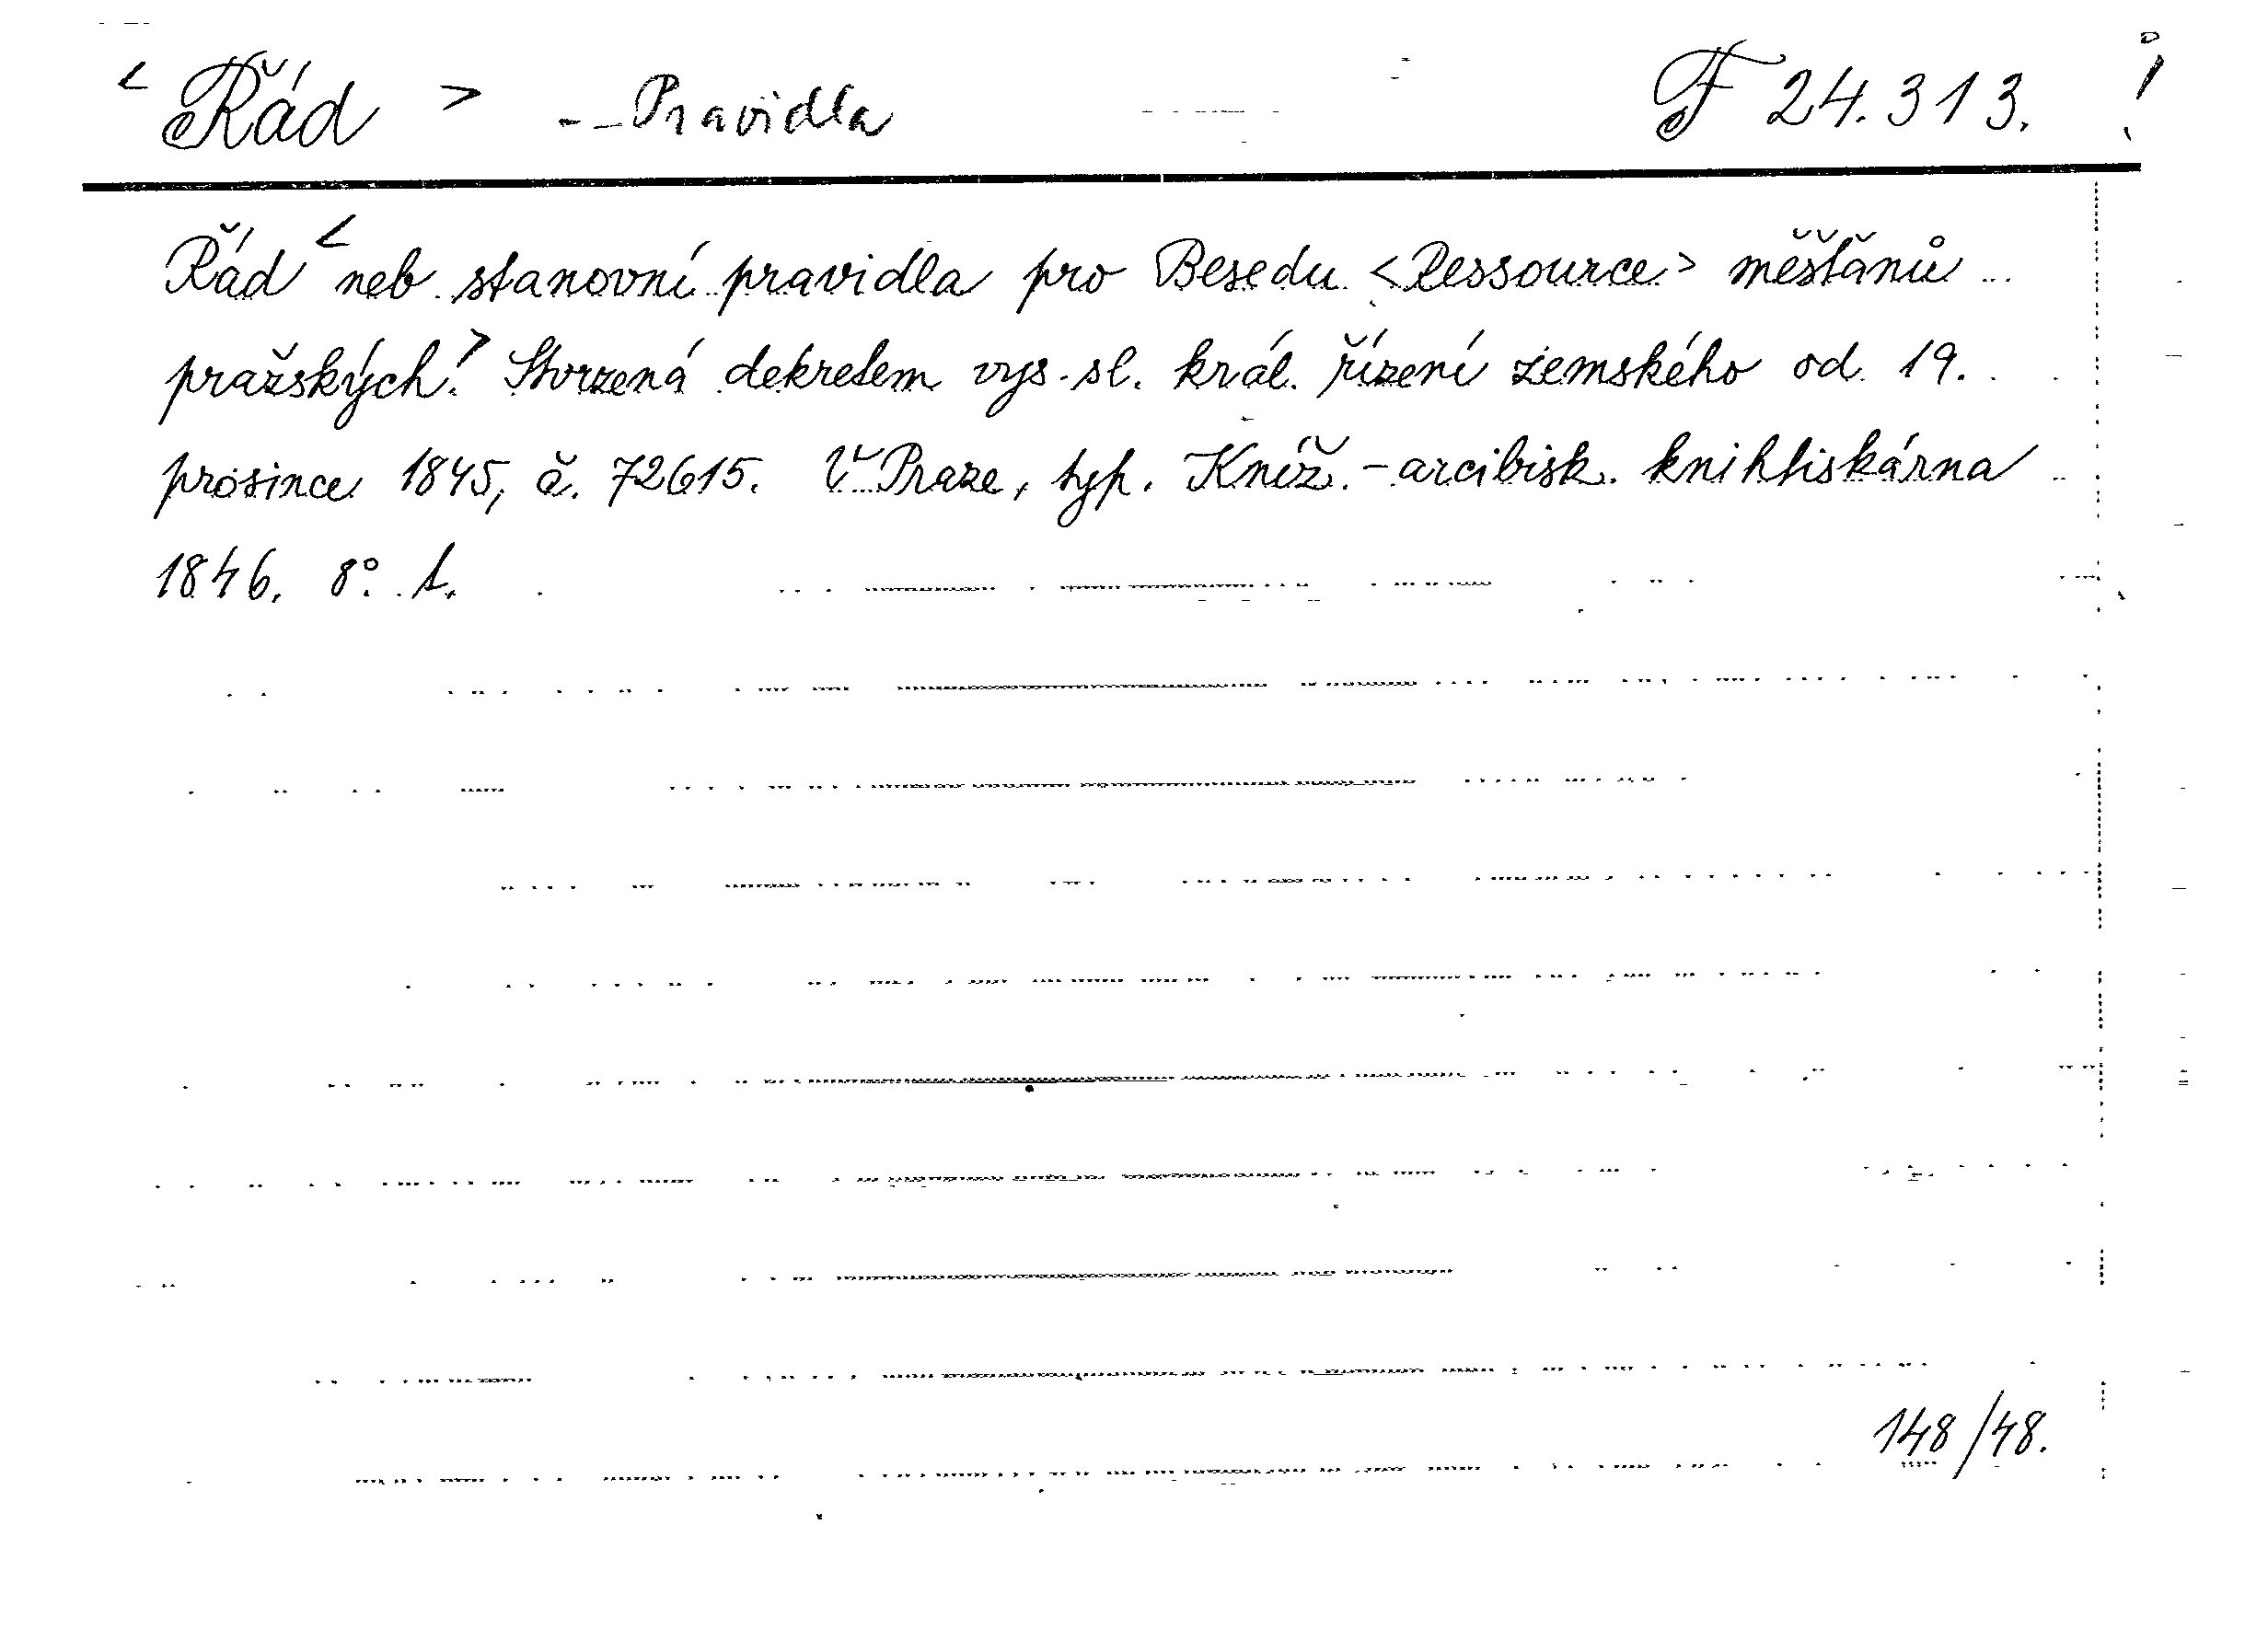 < Řád > -- Pravidla F 24.313. !
Řád < neb stanovní pravidla pro Besedu <Ressource> měšťanů
pražských. > Stvrzená dekretem vys. sl. král. řízení zemského od 19.
prosince 1845, č. 72615. V Praze, typ. Kníž.-arcibisk. knihtiskárna
1846. 8°. 1.
148/48.